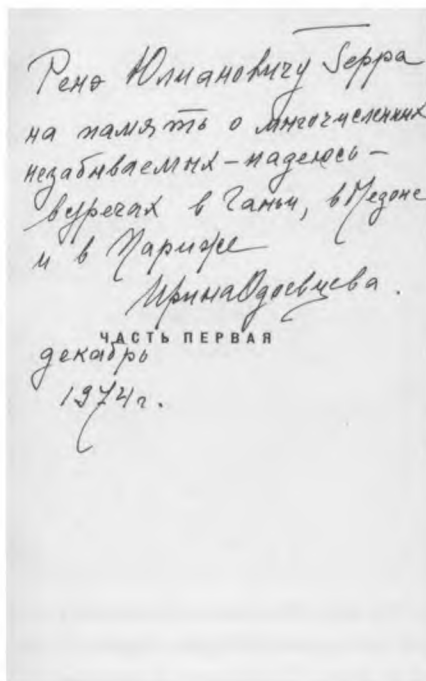 Ренэ Юлиановичу Герра
на память о многочисленних
незабываемых – надеюсь –
встречах в Ганьи, в Медоне
и в Париже
Ирина Одоевцева.
ЧАСТЬ ПЕРВАЯ
декабрь
1974г.